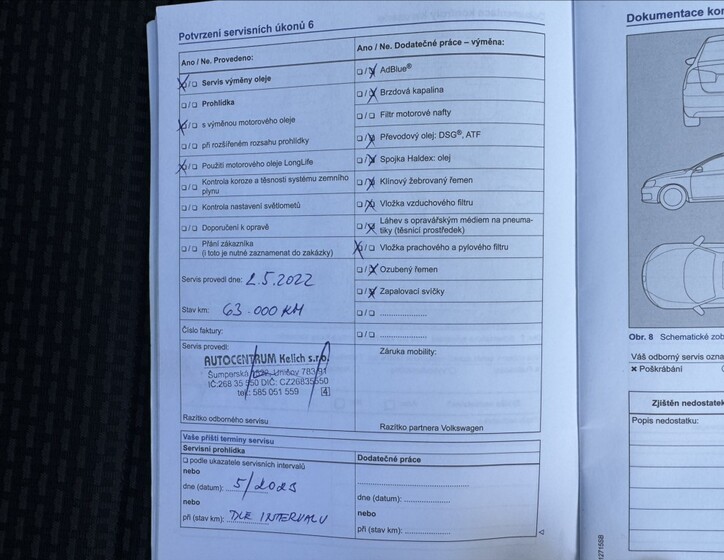 Potvrzení servisních úkonů 6
Ano / Ne. Provedeno:
X/❑ Servis výměny oleje
❑/❑ Prohlídka
X/❑ s výměnou motorového oleje
❑/❑ při rozšířeném rozsahu prohlídky
X/❑ Použití motorového oleje LongLife
❑/❑ Kontrola koroze a těsnosti systému zemního
plynu
❑/❑ Kontrola nastavení světlometů
❑/❑ Doporučení k opravě
❑/❑ Přání zákazníka
(i toto je nutné zaznamenat do zakázky)
Servis provedl dne: 2.5.2022
Stav km: 63.000 KM
Číslo faktury:
Servis provedl:
AUTOCENTRUM Kelich s.r.o.
Šumperská, Uničov 783 91
IČ:268 35 550 DIČ: CZ26835550
tel.: 585 051 559 4
Razítko odborného servisu
Ano / Ne. Dodatečné práce – výměna:
❑/X AdBlue®
❑/X Brzdová kapalina
❑/❑ Filtr motorové nafty
❑/X Převodový olej: DSG®, ATF
❑/X Spojka Haldex: olej
❑/X Klínový žebrovaný řemen
❑/X Vložka vzduchového filtru
❑/X Láhev s opravářským médiem na pneuma-
tiky (těsnicí prostředek)
X/❑ Vložka prachového a pylového filtru
❑/X Ozubený řemen
❑/X Zapalovací svíčky
❑/❑ ....................
❑/❑ ....................
Záruka mobility:
Razítko partnera Volkswagen
Vaše příští termíny servisu
Servisní prohlídka
❑ podle ukazatele servisních intervalů
nebo
dne (datum): 5/2023
nebo
při (stav km): DLE INTERVALU
Dodatečné práce
dne (datum): ....................
nebo
při (stav km): ....................
Dokumentace kon
Obr. 8 Schematické zob
Váš odborný servis ozna
× Poškrábání
Zjištěn nedostatek
Popis nedostatku: